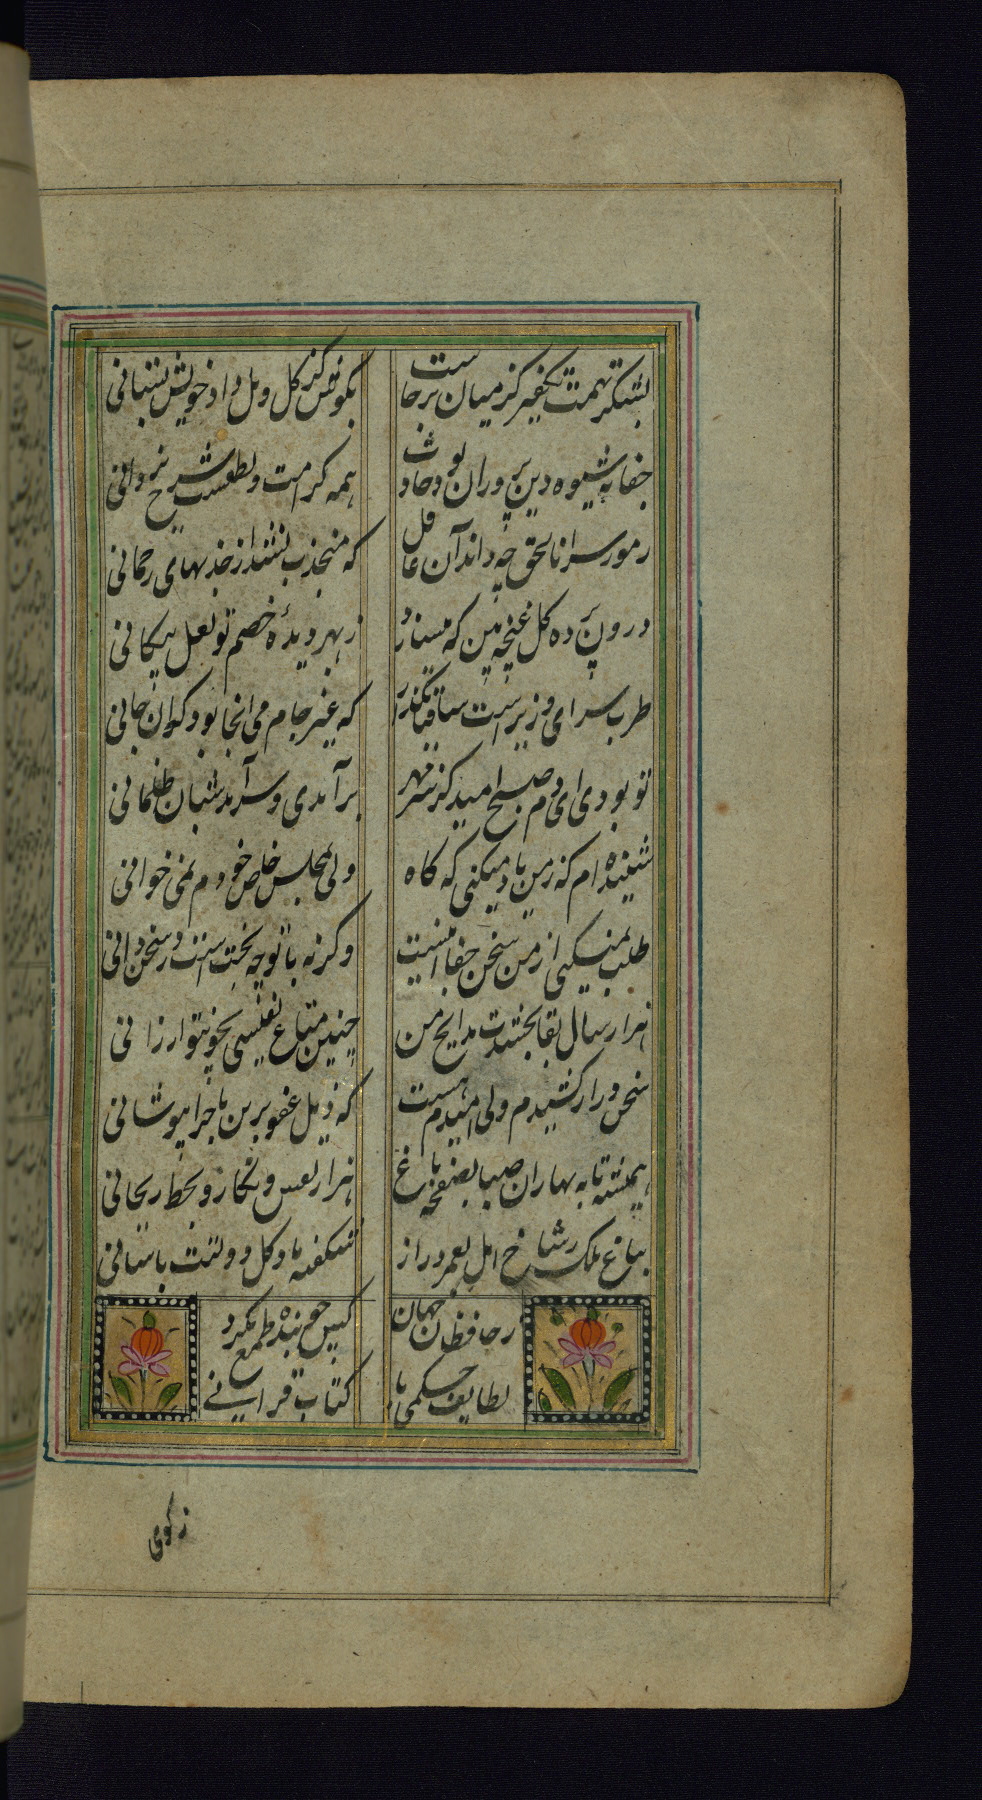 بشکر تهمت تکفیر کز میان برخاست
بکوش کز کل و مل داد خویش بستانی
جفا نه شیوه دین پروران بود حاشا
همه کرامت و لطفست شرع یزدانی
رموز سر اناالحق چه داند آن غافل
که منجذب نشد از جذبهای رحمانی
درون پرده کل غنچه بین که میسازد
ز بهر دیدهٔ خصم تو لعل پیکانی
طرب سرای وزیرست ساقیا مگذار
که غیر جام می انجا بود کران جانی
تو بودی ای دم صبح امید کز سر مهر
برآمدی و سرآمد شبان ظلمانی
شنیده ام که ز من یاد میکنی که کاه
ولی بمجلس خاص خودم نمی خوانی
طلب نمیکنی از من سخن جفا اینست
وکرنه با تو چه بحث است در سخن دانی
هزار سال بقا بخشدت مدایح من
چنین متاع نفیسی بچو تو ارزانی
سخن دراز کشیدم ولی امیدم هست
که ذیل عفو برین ماجرا بپوشانی
همیشه تا به بهاران صبا بصفحه باغ
هزار نقش نگارد بخط ریحانی
بباغ ملک ز شاخ امل بعمر دراز
شکفته باد کل دولتت باسانی
ز حافظان جهان
کس چو بنده جمع نکرد
لطایف حکمی با
کتاب قرانی
زکوی